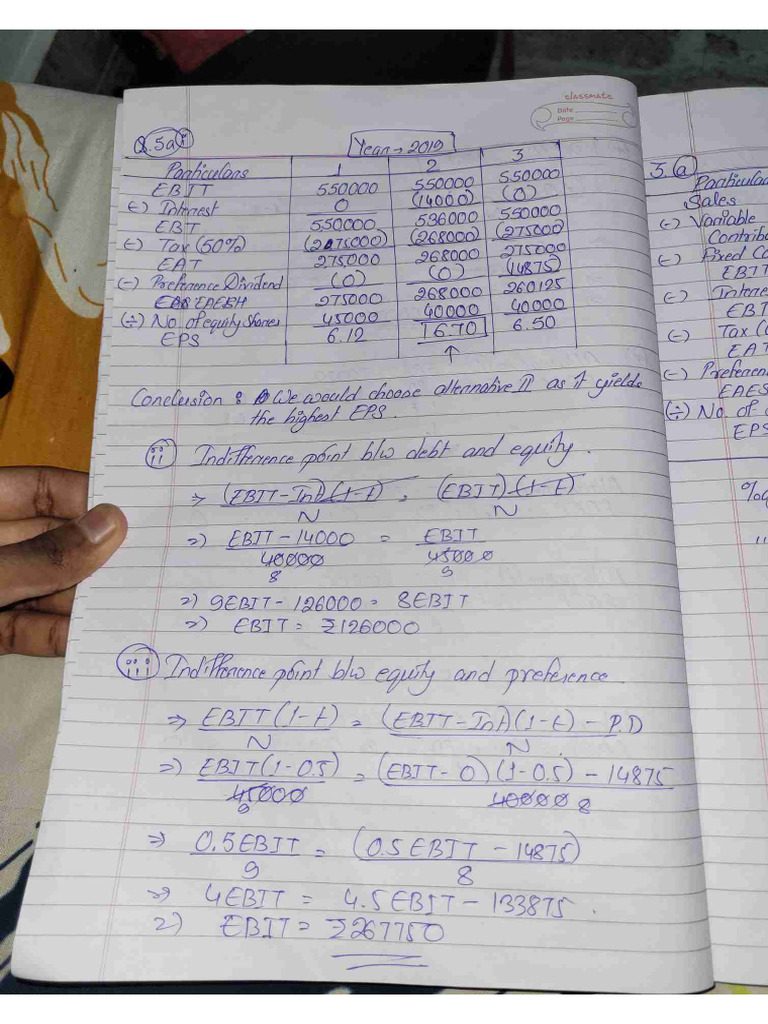 classmate
Date
Page
Q.5a i
Year → 2019
Particulars 1 2 3
EBIT 550000 550000 550000
(-) Interest 0 (14000) (0)
EBT 550000 536000 550000
(-) Tax (50%) (275000) (268000) (275000)
EAT 275000 268000 275000
(-) Preference Dividend (0) (0) (14875)
EAESH 275000 268000 260125
(÷) No. of equity Shares 45000 40000 40000
EPS 6.12 6.70 6.50
↑
Conclusion : We would choose alternative II as it yields
the highest EPS.
ii Indifference point b/w debt and equity.
⇒ (EBIT-Int)(1-t) = (EBIT)(1-t)
N N
⇒ EBIT - 14000 = EBIT
40000 45000
8 9
⇒ 9EBIT - 126000 = 8EBIT
⇒ EBIT = ₹126000
iii Indifference point b/w equity and preference.
⇒ EBIT(1-t) = (EBIT-Int)(1-t) - P.D
N N
⇒ EBIT(1-0.5) = (EBIT-0)(1-0.5) - 14875
45000 40000 8
9
⇒ 0.5EBIT = (0.5EBIT - 14875)
9 8
⇒ 4EBIT = 4.5EBIT - 133875.
⇒ EBIT = ₹267750
3. a
Particular
Sales
(-) Variable
Contrib
(-) Fixed Co
EBIT
(-) Intere
EBT
(-) Tax (
EAT
(-) Preferen
EAES
(÷) No. of
EPS